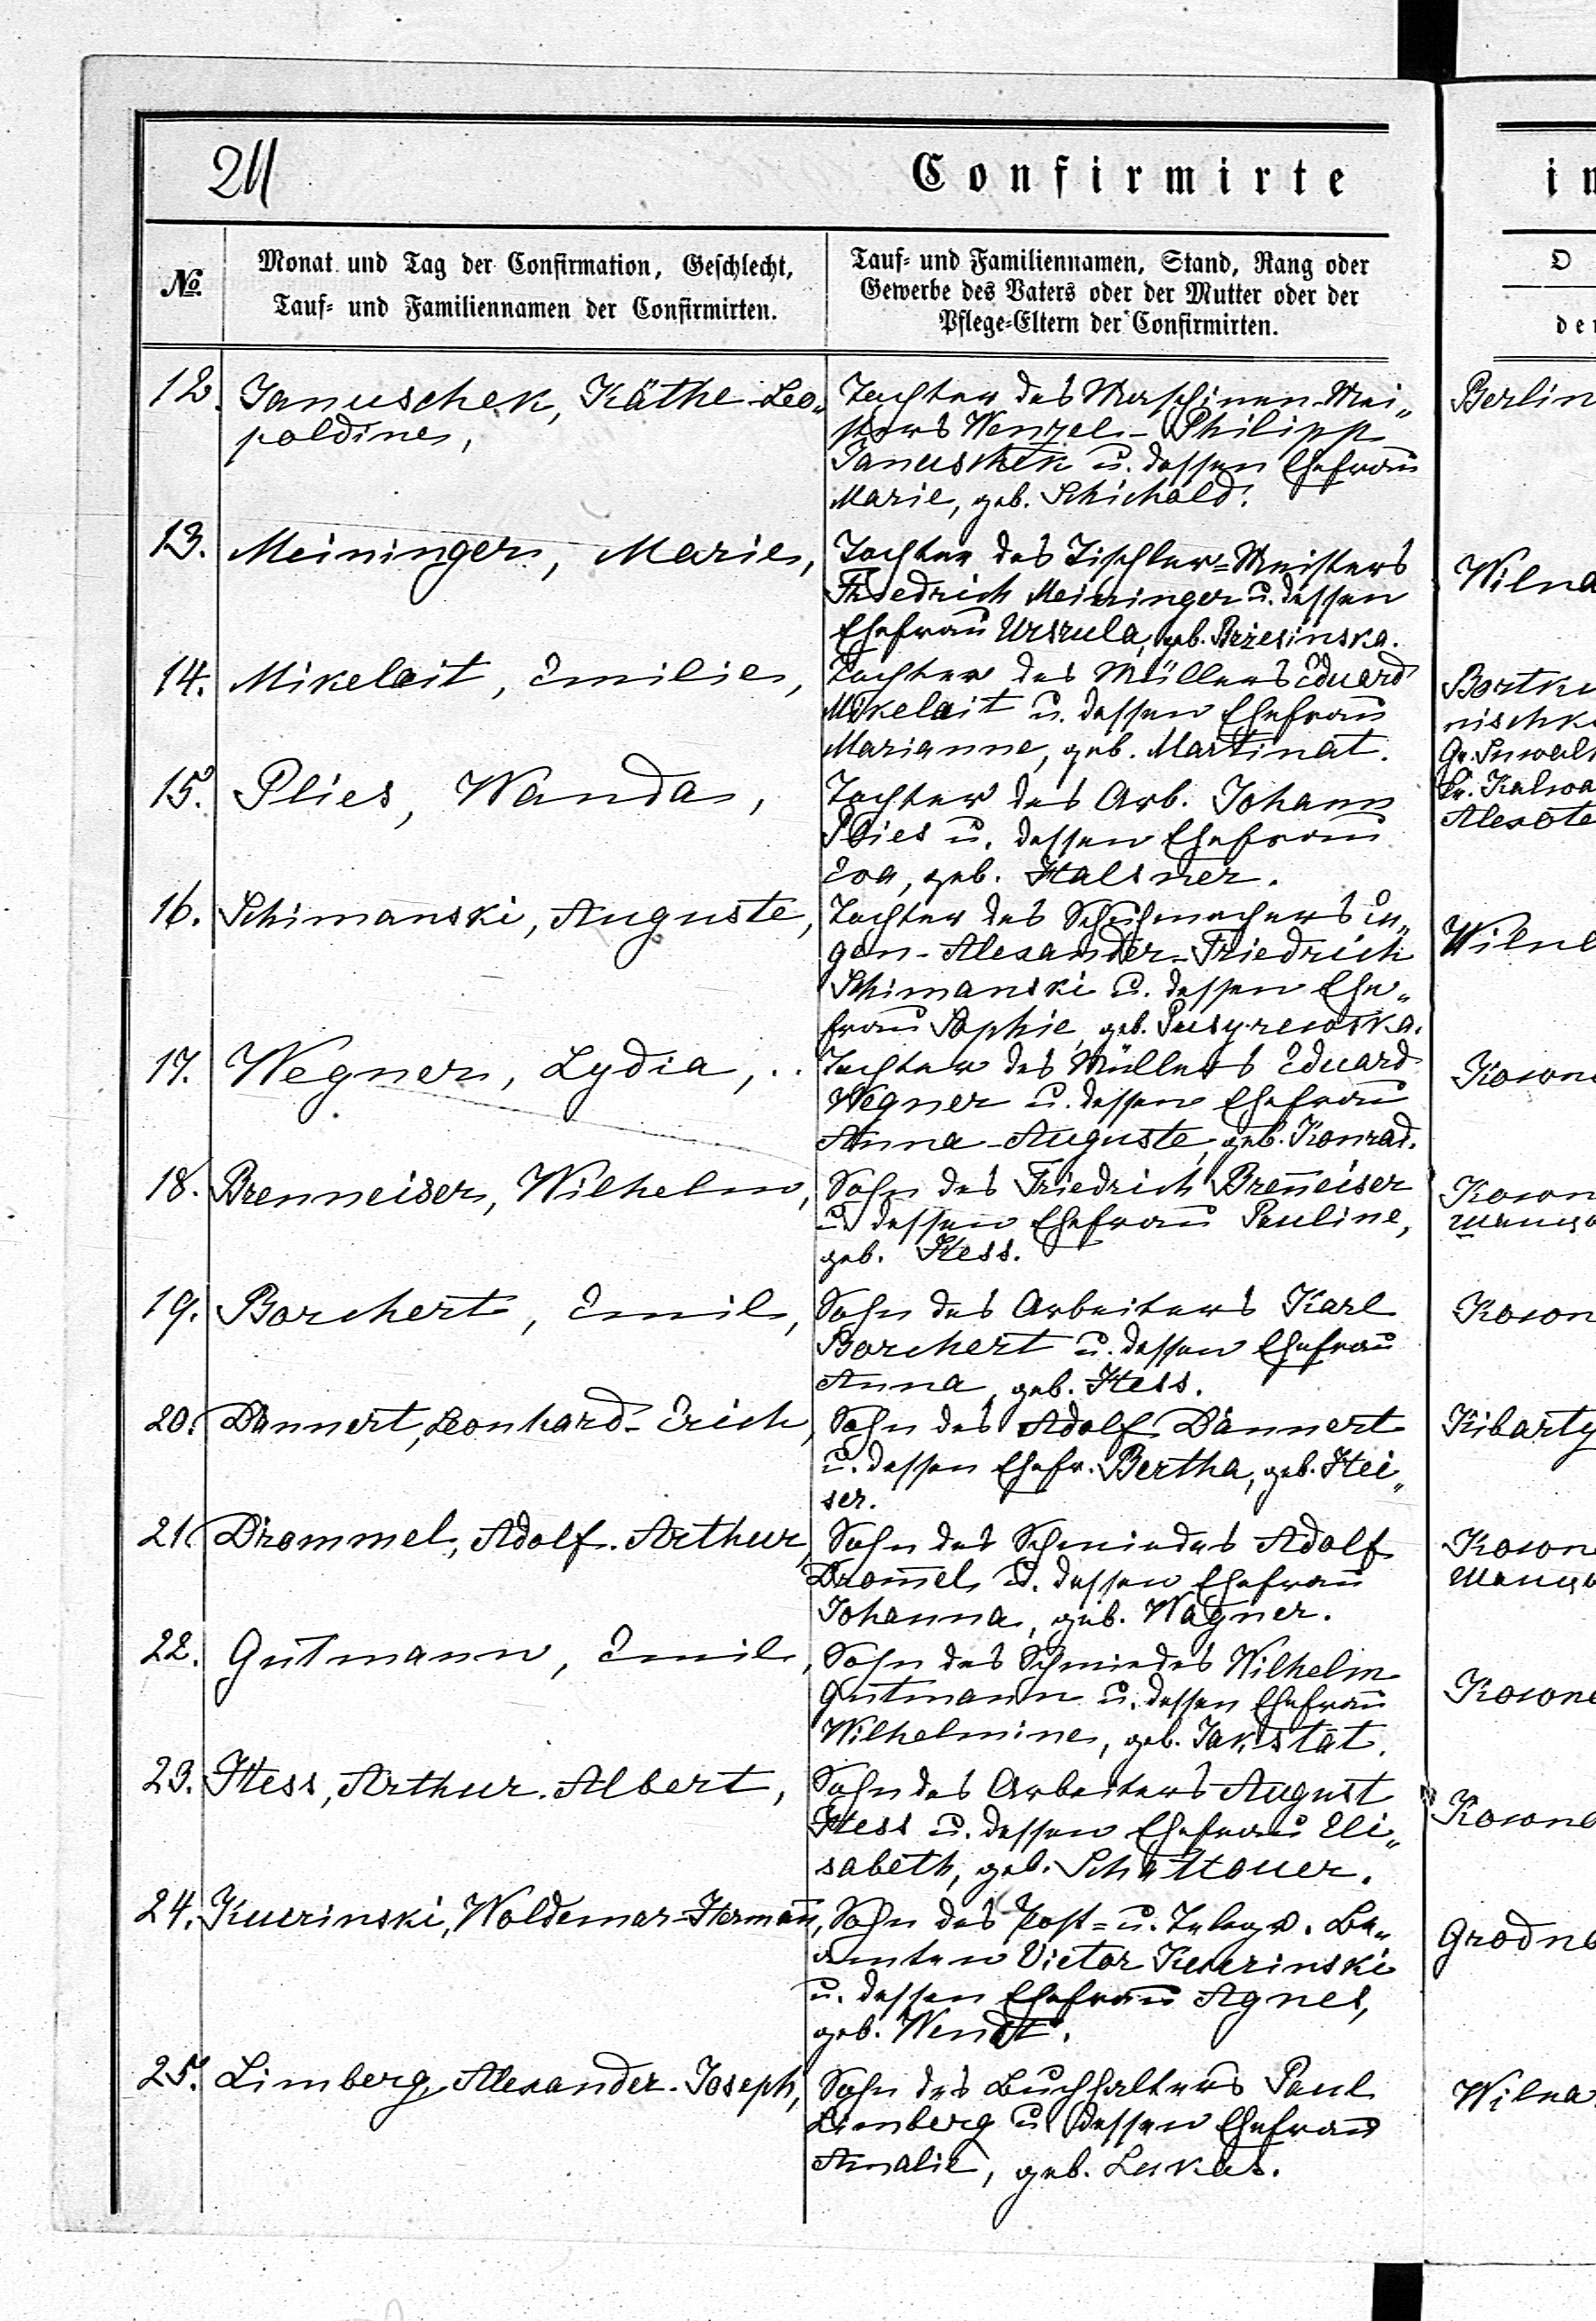 Confirmirte
№
Monat und Tag der Confirmation, Geschlecht,
Tauf- und Familiennamen der Confirmirten.
Tauf- und Familiennamen, Stand, Rang oder
Gewerbe des Vaters oder der Mutter oder der
Pflege-Eltern der Confirmirten.
12. Januschek, Käthe Leo„
poldine,
Tochter des Maschinen-Mei„
sters Wenzel-Philipp
Januschek u. dessen Ehefrau
Marie, geb. Schichald.
Berlin
13. Meininger, Marie,
Tochter des Tischler=Meisters
Friedrich Meininger u. dessen
Ehefrau Urszula, geb. Brzesinska.
Wilna
14. Mikeleit, Emilie,
Tochter des Müllers Eduard
Mikeleit u. dessen Ehefrau
Marianne, geb. Martinat.
15. Plies, Wanda,
Tochter des Arb. Johann
Plies u. dessen Ehefrau
Eva, geb. Halsner.
16. Schimanski, Auguste,
Tochter des Schuhmachers Eu„
gen-Alexander-Friedrich
Schimanski u. dessen Ehe„
frau Sophie, geb. Pusyrewska.
17. Wegner, Lydia,
Tochter des Müllers Eduard
Wegner u. dessen Ehefrau
Anna-Auguste, geb. Konrad.
18. Brenneiser, Wilhelm,
Sohn des Friedrich Breñeiser
u. dessen Ehefrau Pauline,
geb. Hess.
19. Borchert, Emil,
Sohn des Arbeiters Karl
Borchert u. dessen Ehefrau
Anna, geb. Hess.
20. Dannert, Leonhard-Erich,
Sohn des Adolf Dannert
u. dessen Ehefr. Bertha, geb. Hei„
ser.
Kibarty
21. Drommel, Adolf-Arthur,
Sohn des Schmiedes Adolf
Drom̄el u. dessen Ehefrau
Johanna, geb. Wagner.
22. Gutmann, Emil,
Sohn des Schmiedes Wilhelm
Gutmann u. dessen Ehefrau
Wilhelmine, geb. Jakstat.
23. Hess, Arthur-Albert,
Sohn des Arbeiters August
Hess u. dessen Ehefrau Eli„
sabeth, geb. Schattauer.
24. Kuerinski, Woldemar-Herman̄,
Sohn des Post=u. Telegr. Be„
amten Victor Kuerinski
u. dessen Ehefrau Agnes,
geb. Wendt.
25. Limberg, Alexander-Joseph,
Sohn des Buchhalters Paul
Limberg u. dessen Ehefrau
Amalie, geb. Lukas.
Wilna